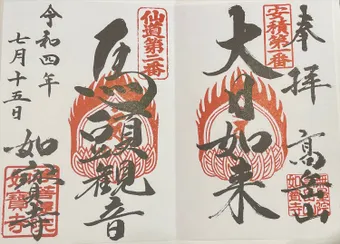 奉拝
安積第一番
大日如来
仙道第二番
馬頭觀音
如寳寺
如寶寺
令和四年
七月十五日